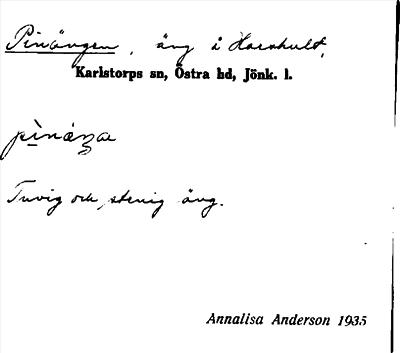 Pinängen, äng å Haerhult,
Karlstorps sn, Östra hd, Jönk. l.
Tuvig och stenig äng.
Annalisa Anderson 1935